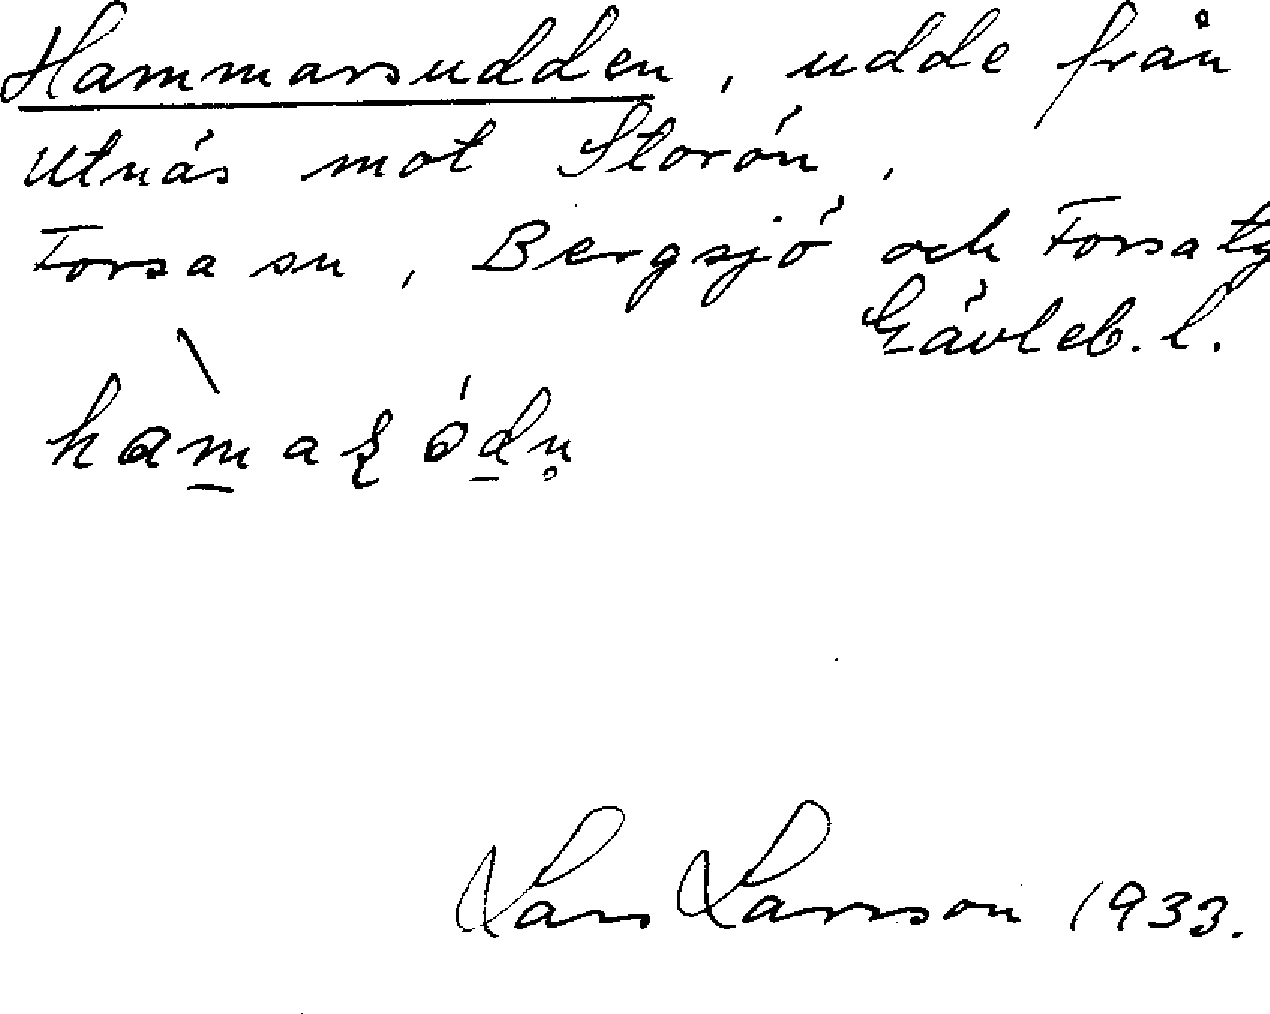 Hammarsudden, udde från
Utnäs mot Storön.
Forsa sn, Bergsjö och Forsa tg
Gävleb. l.
Lars Larsson 1933.